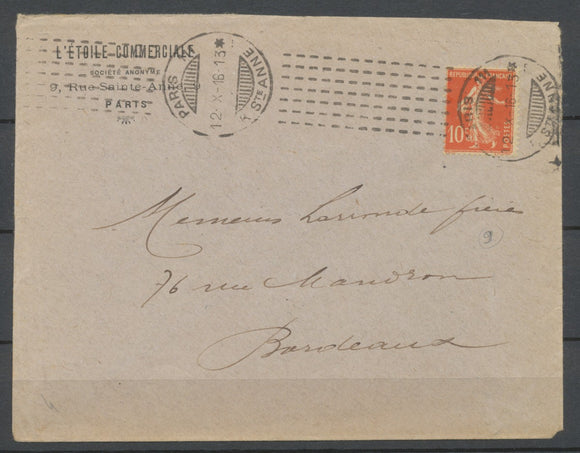 L'ÉTOILE COMMERCIALE
SOCIÉTÉ ANONYME
9, Rue Sainte-Anne, 9
PARIS
PARIS
12-X-16 13*
R. STE ANNE
REPUBLIQUE FRANÇAISE
10
POSTES
16 13*
STE ANNE
Messieurs Larronde frères
9
76 rue Mandron
Bordeaux